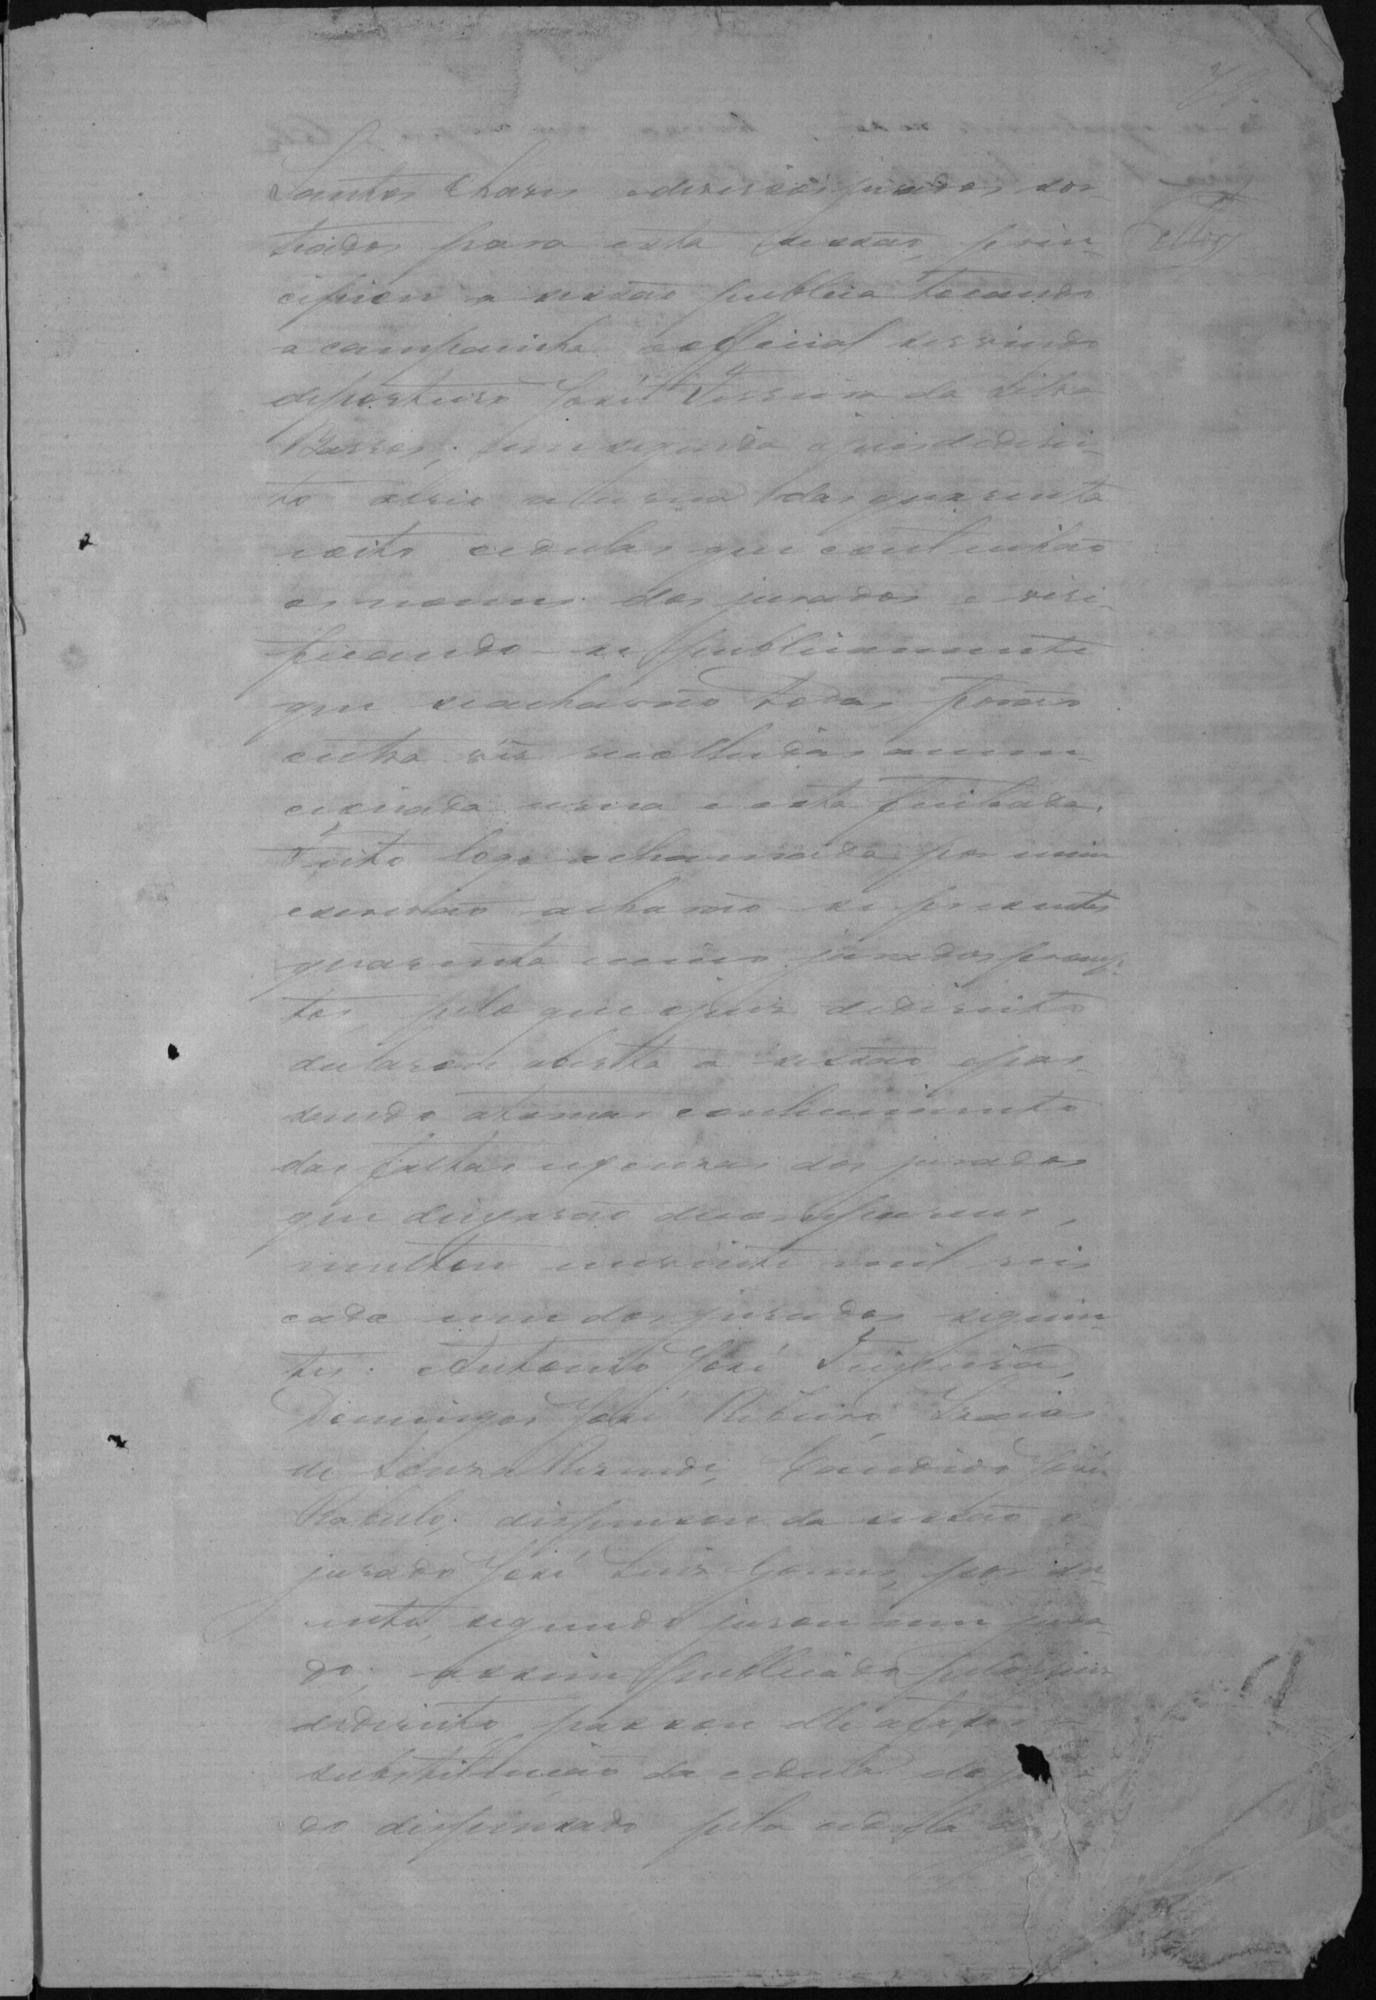 Santos Chaves e diversos jurados sor-
teados para esta sessão, prin-
cipiou a sessão publica tocando
a campainha o official servindo
de porteiro José Ferreira da Silva
Barros; em seguida o juis de direi-
to abrio a urna das quarenta
e oito cedulas que continhão
os nomes dos jurados e veri-
ficando-se publicamente
que se achavão todas forão
outra vez recolhidas a men-
cionada urna e esta fechada.
Feita logo a chamada por mim
escrivão acharão-se presentes
quarenta jurados promp-
tos, pelo que o juis de direito
declarou aberta a sessão e pas-
sando a tomar conhecimento
das faltas e escusas dos jurados
que deixarão de comparecer,
multou em vinte mil reis
cada um dos jurados seguin-
tes: Antonio José
Domingos José Ribeiro,
de Souza Resende, Candido José
Rabelo; dispensou da sessão o
jurado José Luis Gomes, por do-
ente, segundo jurou um jura-
do; assim publicado pelo juis
de direito, passou elle a fazer a
substituição da cedula do
do dispensado pela cedula